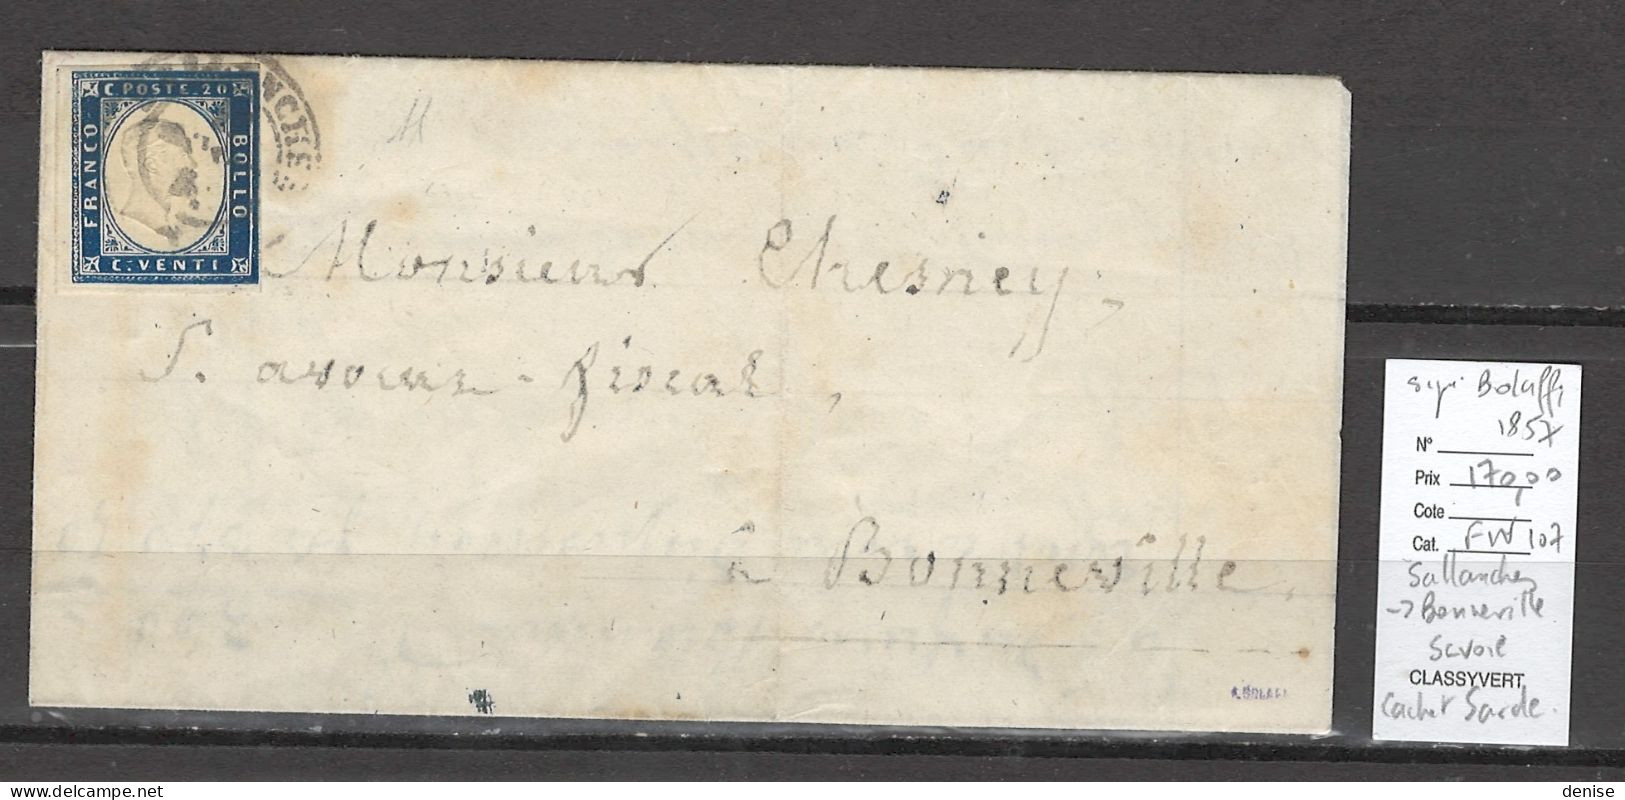 C. POSTE. 20
FRANCO
BOLLO
C. VENTI
Monsieur Chesney,
S. avocat fiscal,
à Bonneville.
sign. Bolaffi
1857
N°
Prix 170,00
Cote
Cat. FW 107
Sallanches
-> Bonneville
Savoie
CLASSYVERT
Cachet Sarde.
©denise